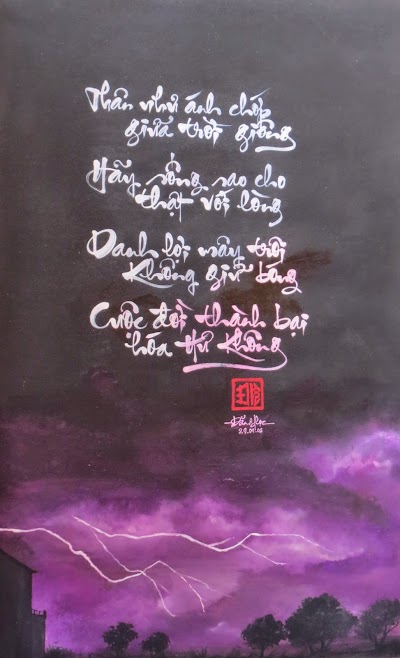 Thân như ánh chớp
giữa trời giông
Hãy sống sao cho
thật với lòng
Danh lợi mây trôi
Không giữ bóng
Cuộc đời thành bại
hóa Hư Không